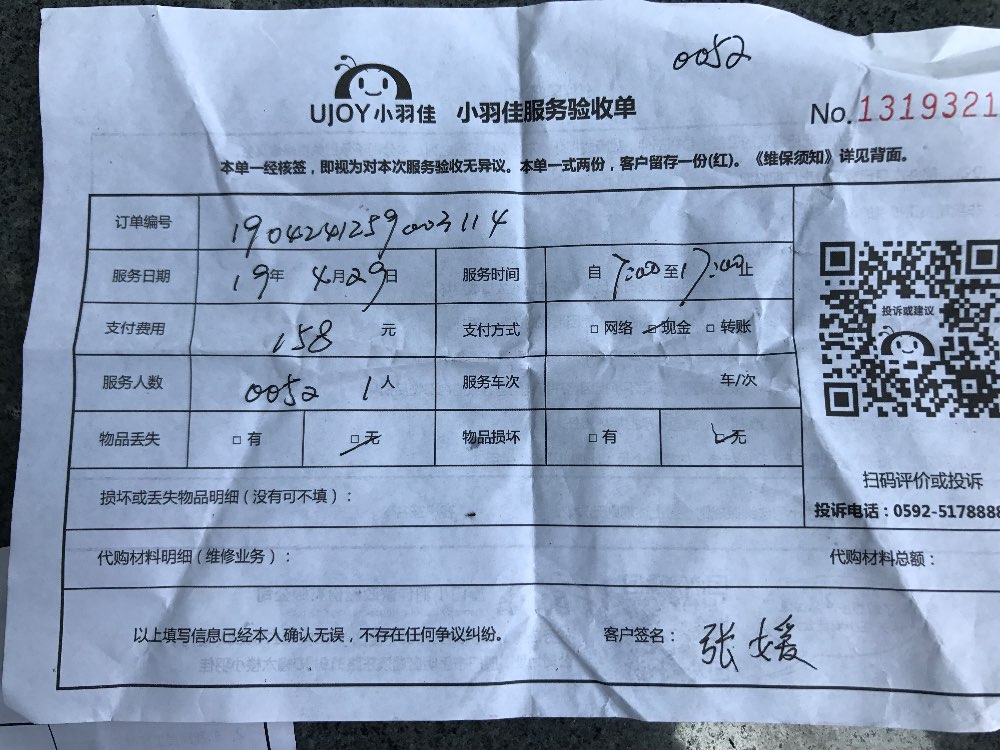 0052
UJOY小羽佳 小羽佳服务验收单 No.1319321
本单一经核签，即视为对本次服务验收无异议。本单一式两份，客户留存一份(红)。《维保须知》详见背面。
订单编号 1904241259003114
服务日期 19年 4月29日 服务时间 自 7:00至17:00止
支付费用 158 元 支付方式 □网络 □现金 □转账
服务人数 0052 1人 服务车次 车/次
物品丢失 □有 □无 物品损坏 □有 □无
投诉或建议
扫码评价或投诉
投诉电话：0592-5178888
损坏或丢失物品明细（没有可不填）：
代购材料明细（维修业务）： 代购材料总额：
以上填写信息已经本人确认无误，不存在任何争议纠纷。 客户签名：张媛